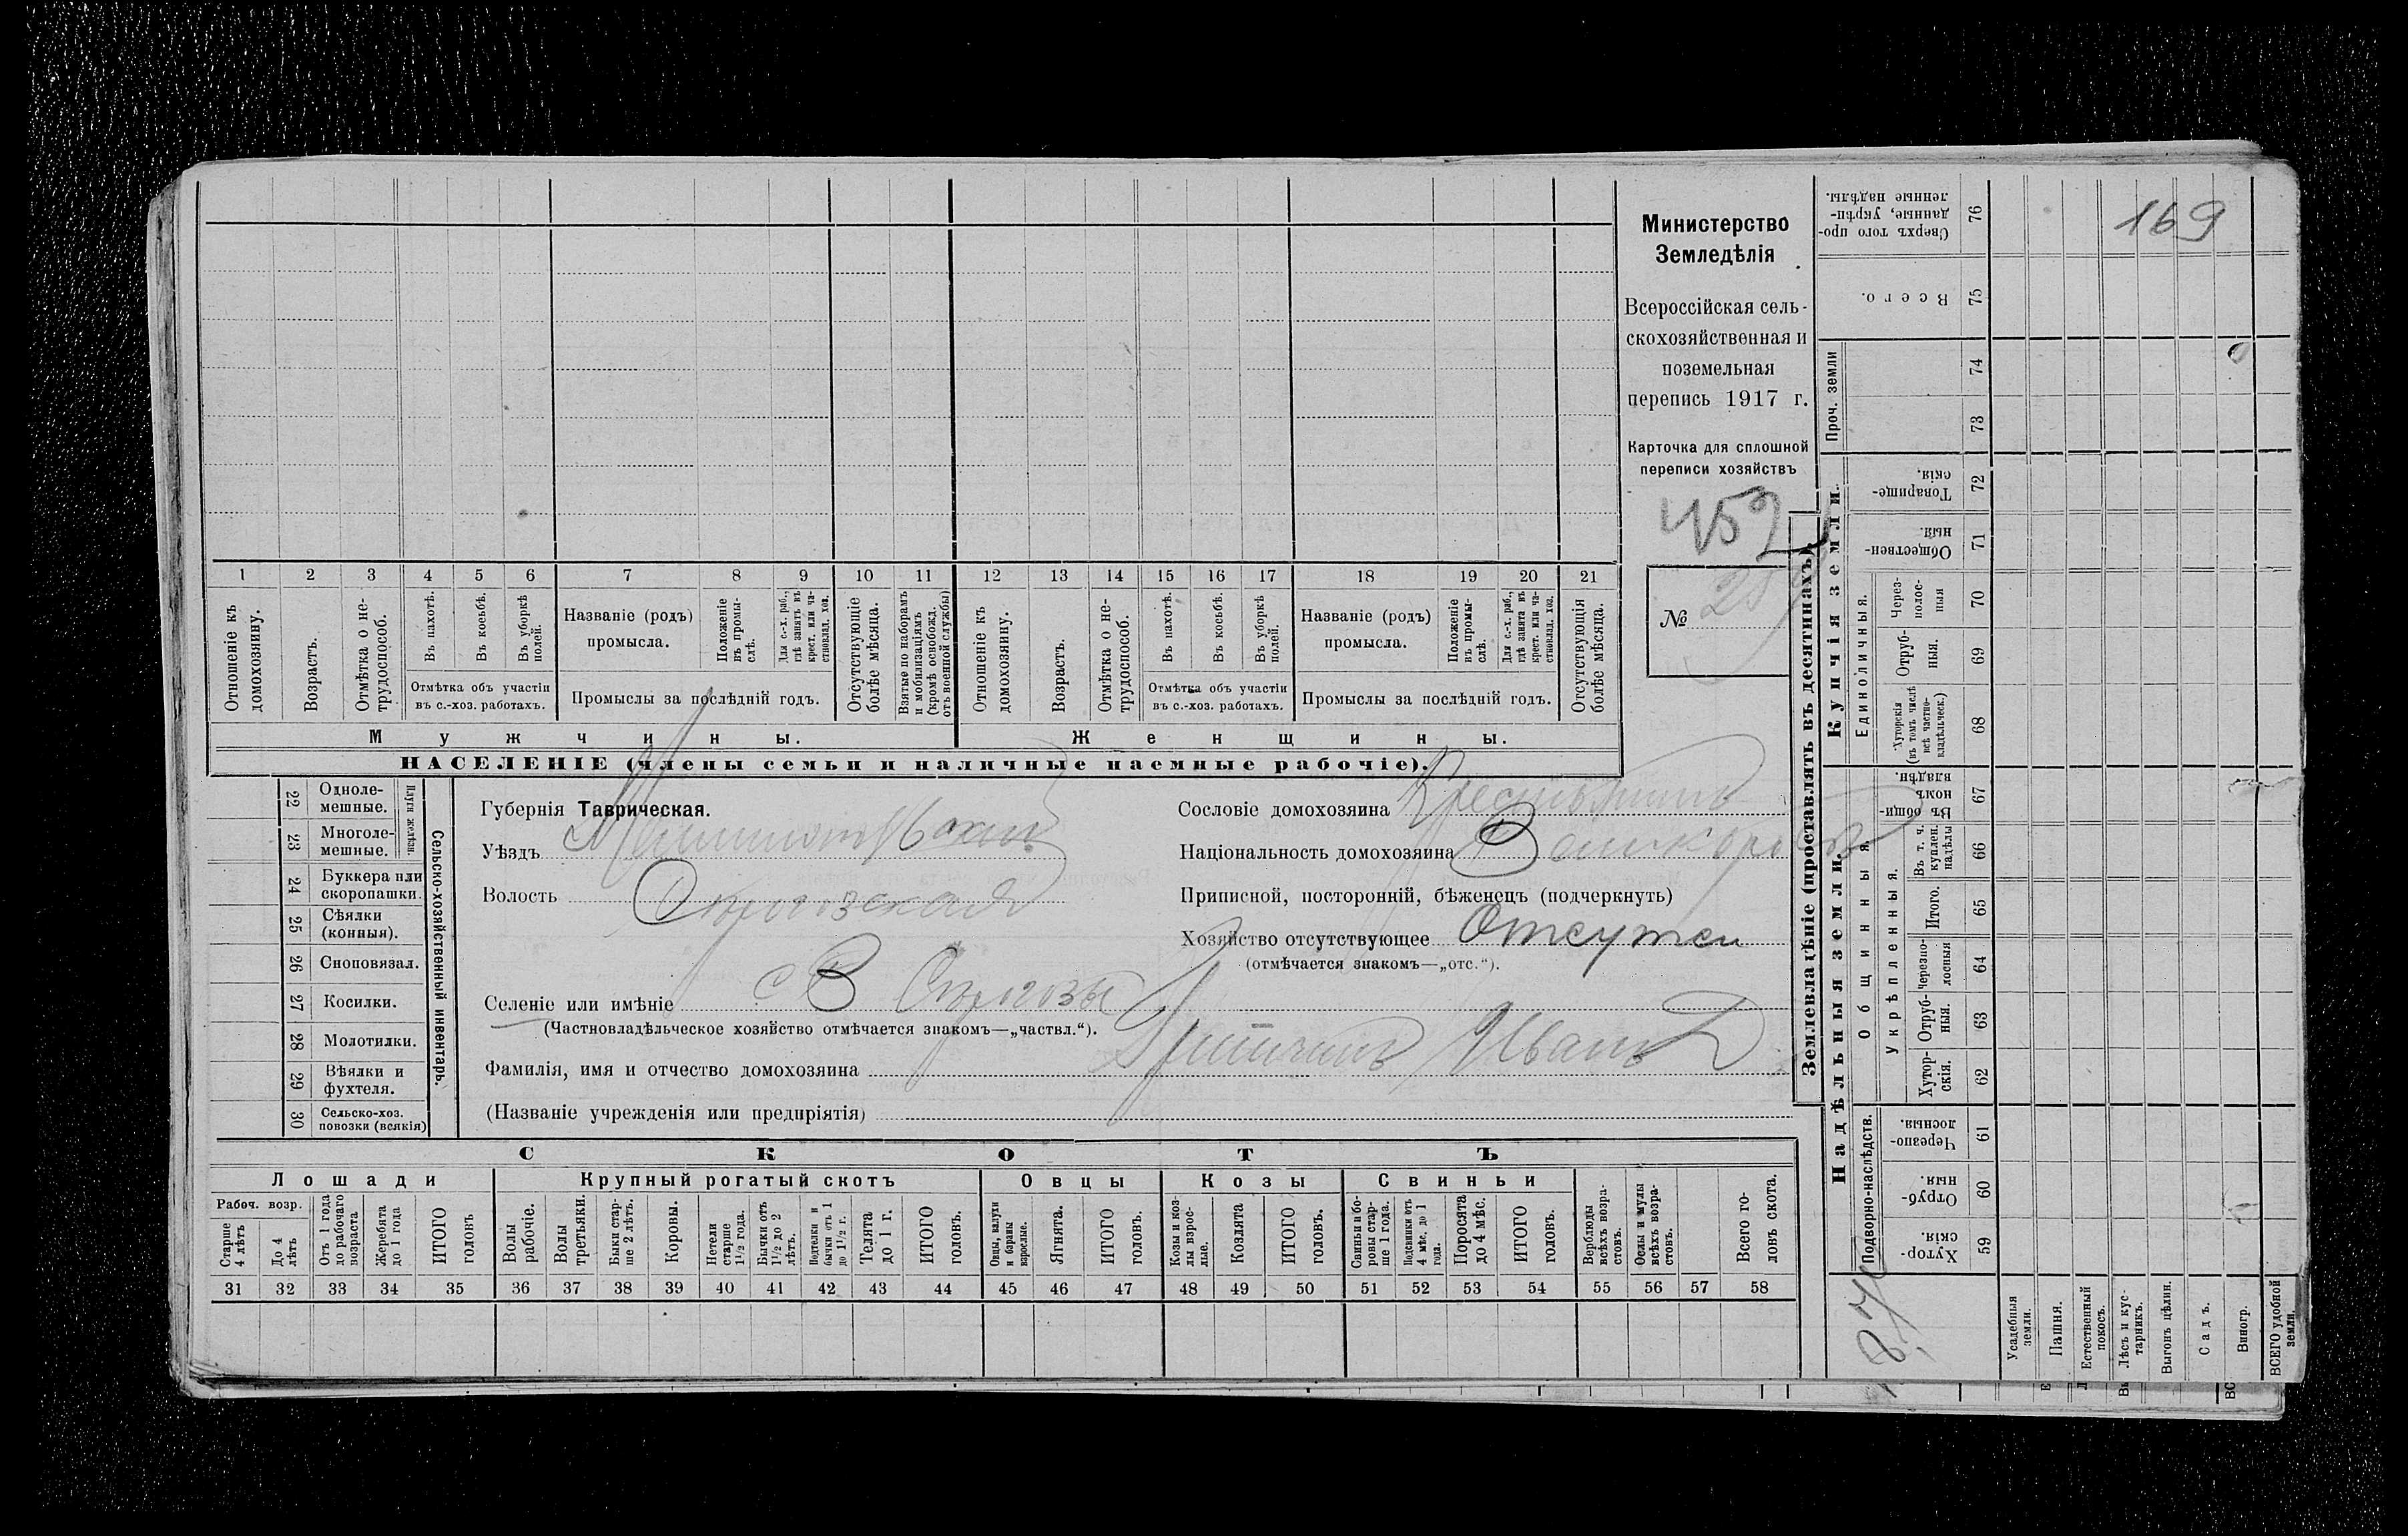 Министерство
Земледѣлія
Всероссійская сель-
скохозяйственная и
поземельная
перепись 1917 г.
Карточка для сплошной
переписи хозяйствъ
459
№ 25
169
1 2 3 4 5 6 7 8 9 10 11 12 13 14 15 16 17 18 19 20 21
Отношеніе къ домохозяину.
Возрастъ.
Отмѣтка о не-трудоспособ.
Въ пахотѣ.
Въ косьбѣ.
Въ уборкѣ полей.
Отмѣтка объ участіи
въ с.-хоз. работахъ.
Названіе (родъ)
промысла.
Положеніе въ промы-слѣ.
Для с.-х. раб., гдѣ занятъ въ крест. или ча-ствовлад. хоз.
Промыслы за послѣдній годъ.
Отсутствующіе болѣе мѣсяца.
Взятые по наборамъ и мобилизаціямъ (кромѣ освобожд. отъ военной службы)
Отношеніе къ домохозяину.
Возрастъ.
Отмѣтка о не-трудоспособ.
Въ пахотѣ.
Въ косьбѣ.
Въ уборкѣ полей.
Отмѣтка объ участіи
въ с.-хоз. работахъ.
Названіе (родъ)
промысла.
Положеніе въ промы-слѣ.
Для с.-х. раб., гдѣ занята въ крест. или ча-ствовлад. хоз.
Промыслы за послѣдній годъ.
Отсутствующія болѣе мѣсяца.
Мужчины.
Женщины.
НАСЕЛЕНІЕ (члены семьи и наличные наемные рабочіе).
22 Одноле-мешные.
23 Многоле-мешные.
Плуги желѣзн.
24 Буккера или скоропашки.
25 Сѣялки (конныя).
26 Сноповязал.
27 Косилки.
28 Молотилки.
29 Вѣялки и фухтеля.
30 Сельско-хоз. повозки (всякія)
Сельско-хозяйственный инвентарь.
Губернія Таврическая.
Уѣздъ
Волость
Селеніе или имѣніе с В
(Частновладѣльческое хозяйство отмѣчается знакомъ—„частвл.“).
Фамилія, имя и отчество домохозяина Иванъ
(Названіе учрежденія или предпріятія)
Сословіе домохозяина Крестьянинъ
Національность домохозяина
Приписной, посторонній, бѣженецъ (подчеркнуть)
Хозяйство отсутствующее Отсутсв
(отмѣчается знакомъ—„отс.“).
СКОТЪ
Лошади
Крупный рогатый скотъ
Овцы
Козы
Свиньи
Рабоч. возр.
Старше 4 лѣтъ
До 4 лѣтъ
Отъ 1 года до рабочаго возраста
Жеребята до 1 года
ИТОГО головъ
Волы рабочіе.
Волы третьяки.
Быки стар-ше 2 лѣтъ.
Коровы.
Нетели старше 1½ года.
Бычки отъ 1½ до 2 лѣтъ.
Подтелки и бычки отъ 1 до 1½ г.
Телята до 1 г.
ИТОГО головъ.
Овцы, валухи и бараны взрослые.
Ягнята.
ИТОГО головъ.
Козы и коз-лы взрос-лые.
Козлята
ИТОГО головъ.
Свиньи и бо-ровы стар-ше 1 года.
Подсвинки отъ 4 мѣс. до 1 года.
Поросята до 4 мѣс.
ИТОГО головъ.
Верблюды всѣхъ возра-стовъ.
Ослы и мулы всѣхъ возра-стовъ.
Всего го-ловъ скота.
31 32 33 34 35 36 37 38 39 40 41 42 43 44 45 46 47 48 49 50 51 52 53 54 55 56 57 58
Землевладѣніе (проставлять въ десятинахъ).
Купчія земли.
Надѣльныя земли.
Сверхъ того про-данные, укрѣп-ленные надѣлы. 76
Всего. 75
Проч. земли 74 73
Товарище-скія. 72
Обществен-ный. 71
Единоличныя.
Через-полос-ныя 70
Отруб-ныя. 69
Хуторскія (въ томъ числѣ всѣ частно-владѣльческ.) 68
Общинныя
Въ общи-номъ владѣн. 67
Укрѣпленныя.
Въ т. ч. куплен. надѣлы 66
Итого. 65
Черезпо-лосныя 64
Отруб-ныя. 63
Хутор-скія. 62
Подворно-наслѣдств.
Черезпо-лосныя. 61
Отруб-ныя. 60
Хутор-скія. 59
Усадебныя земли.
Пашня.
Естественный покосъ.
Лѣсъ и кус-тарникъ.
Выгонъ цѣлин.
Садъ.
Виногр.
ВСЕГО удобной земли.